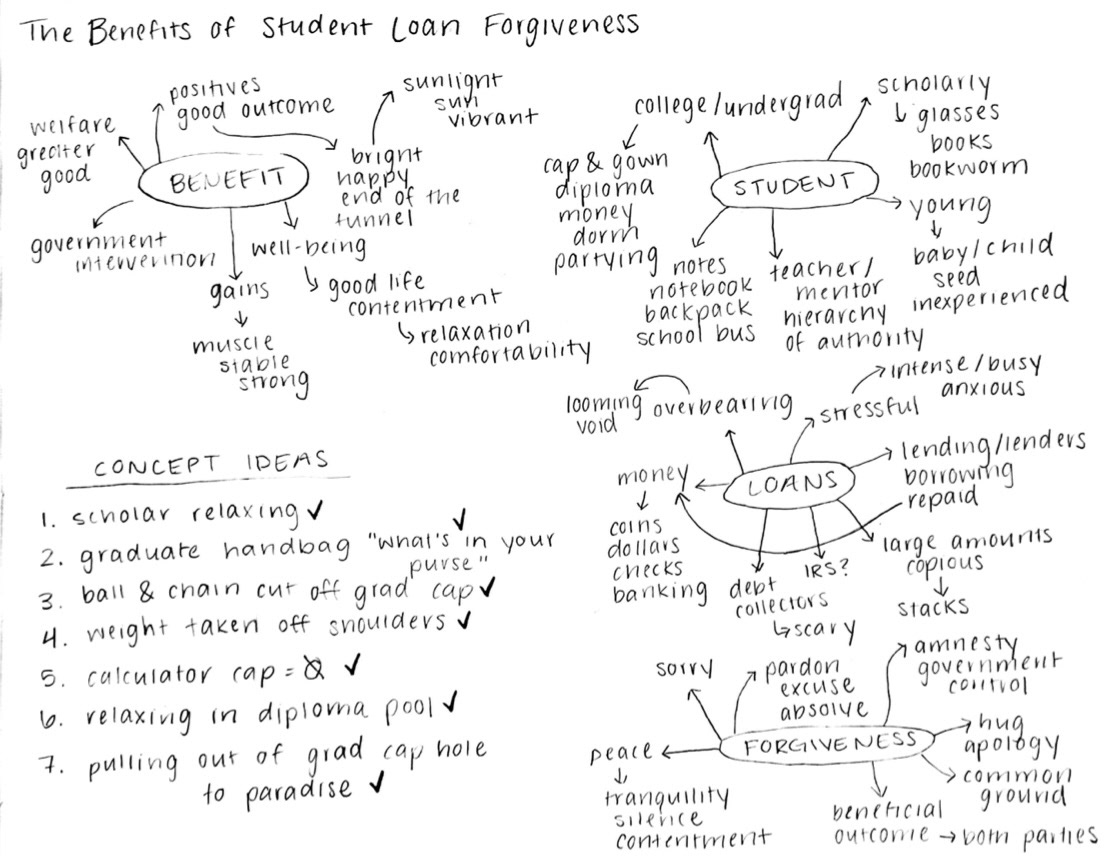 The Benefits of Student Loan Forgiveness
BENEFIT
welfare
greater
good
positives
good outcome
bright
happy
end of the
tunnel
sunlight
sun
vibrant
government
intervention
gains
muscle
stable
strong
well-being
good life
contentment
relaxation
comfortability
STUDENT
college/undergrad
cap & gown
diploma
money
dorm
partying
scholarly
glasses
books
bookworm
young
baby/child
seed
inexperienced
notes
notebook
backpack
school bus
teacher/
mentor
hierarchy
of authority
CONCEPT IDEAS
1. scholar relaxing ✓
2. graduate handbag "what's in your ✓
purse"
3. ball & chain cut off grad cap ✓
4. weight taken off shoulders ✓
5. calculator cap = 0 ✓
6. relaxing in diploma pool ✓
7. pulling out of grad cap hole
to paradise ✓
LOANS
looming
void
overbearing
stressful
intense/busy
anxious
money
coins
dollars
checks
banking
lending/lenders
borrowing
repaid
debt
collectors
scary
IRS?
large amounts
copious
stacks
FORGIVENESS
sorry
pardon
excuse
absolve
amnesty
government
control
peace
tranquility
silence
contentment
hug
apology
common
ground
beneficial
outcome → both parties